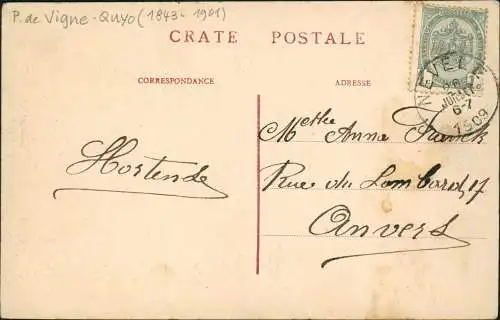 P. de Vigne-Quyo (1843-1901)
CRATE POSTALE
CORRESPONDANCE
ADRESSE
Hortense
Melle Anna Franck
Rue du Lombard, 17
Anvers
6-7
1909